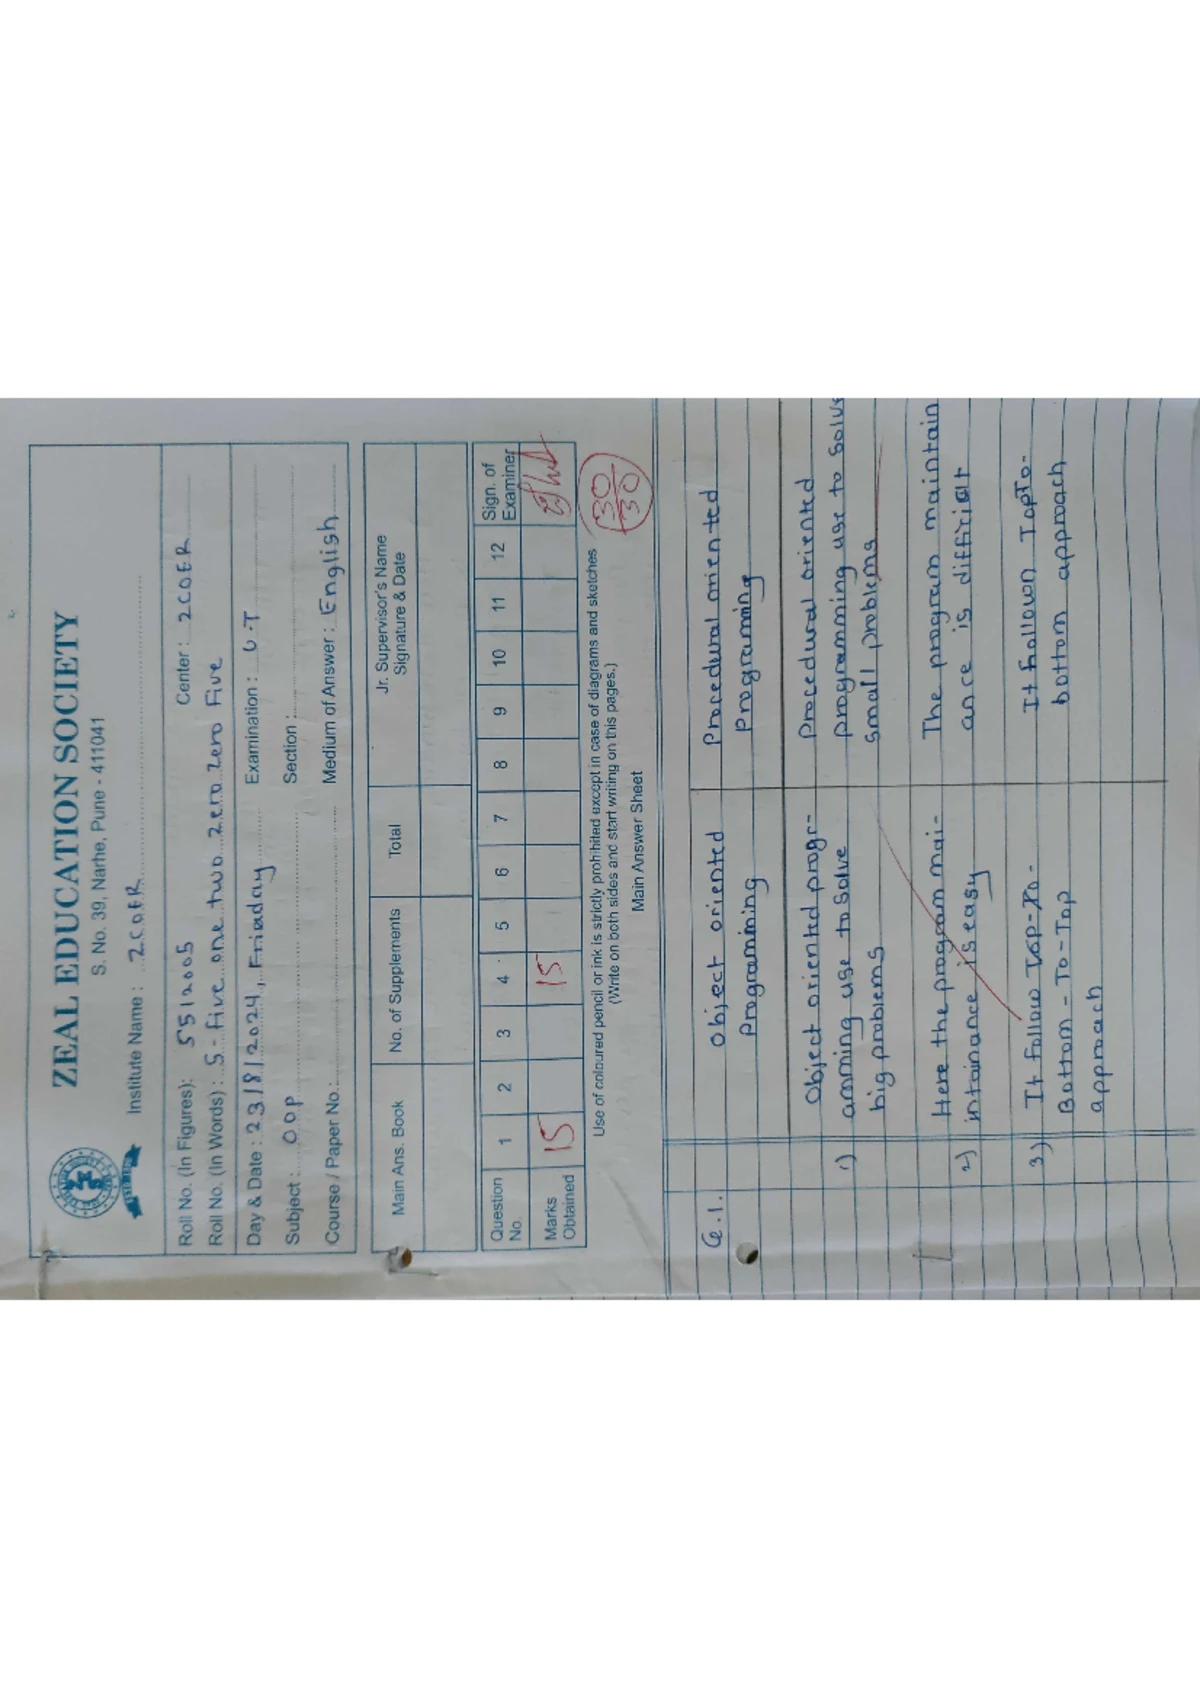 ZEAL EDUCATION SOCIETY
S. No. 39, Narhe, Pune - 411041
Institute Name : ZCOER
Roll No. (In Figures): S512005 Center : ZCOER
Roll No. (In Words) : S-Five one two zero zero Five
Day & Date : 23/8/2024, Friaday Examination : U.T
Subject : OOP Section :
Course / Paper No.: Medium of Answer : English
Main Ans. Book No. of Supplements Total Jr. Supervisor's Name
Signature & Date
Question No. 1 2 3 4 5 6 7 8 9 10 11 12 Sign. of Examiner
Marks Obtained 15 15
30/30
Use of coloured pencil or ink is strictly prohibited except in case of diagrams and sketches
(Write on both sides and start writing on this pages.)
Main Answer Sheet
Q.1. Object oriented Procedural oriented
Programming Programming
Object oriented progr- Procedural oriented
1) amming use to solve programming use to solve
big problems small problems
Here the program mai- The program maintain
2) intainance is easy ance is difficult
3) It follow It follown TopTo-
Bottom - To - Top bottom approach
approach